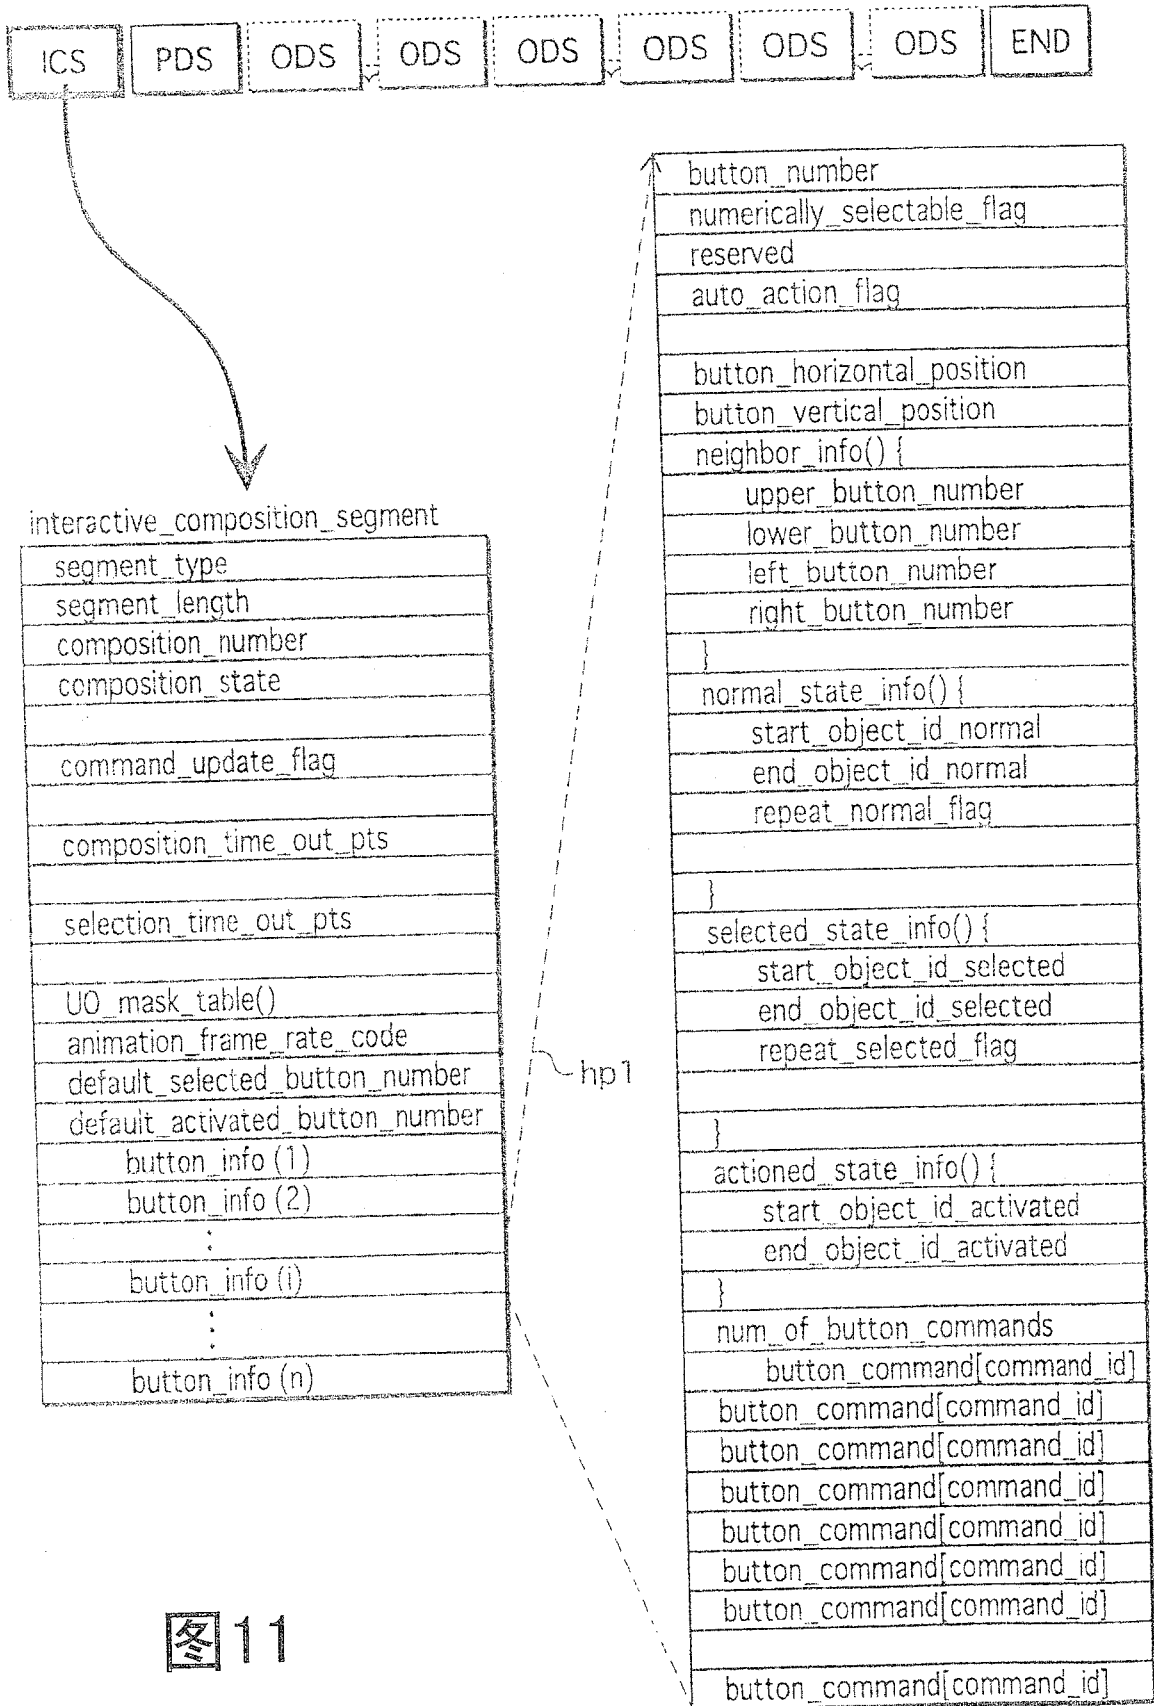 ICS PDS ODS ODS ODS ODS ODS ODS END
interactive_composition_segment
segment_type
segment_length
composition_number
composition_state
command_update_flag
composition_time_out_pts
selection_time_out_pts
UO_mask_table()
animation_frame_rate_code
default_selected_button_number
default_activated_button_number
button_info (1)
button_info (2)
button_info (i)
button_info (n)
hp1
button_number
numerically_selectable_flag
reserved
auto_action_flag
button_horizontal_position
button_vertical_position
neighbor_info() {
upper_button_number
lower_button_number
left_button_number
right_button_number
}
normal_state_info() {
start_object_id_normal
end_object_id_normal
repeat_normal_flag
}
selected_state_info() {
start_object_id_selected
end_object_id_selected
repeat_selected_flag
}
actioned_state_info() {
start_object_id_activated
end_object_id_activated
}
num_of_button_commands
button_command[command_id]
button_command[command_id]
button_command[command_id]
button_command[command_id]
button_command[command_id]
button_command[command_id]
button_command[command_id]
button_command[command_id]
图11